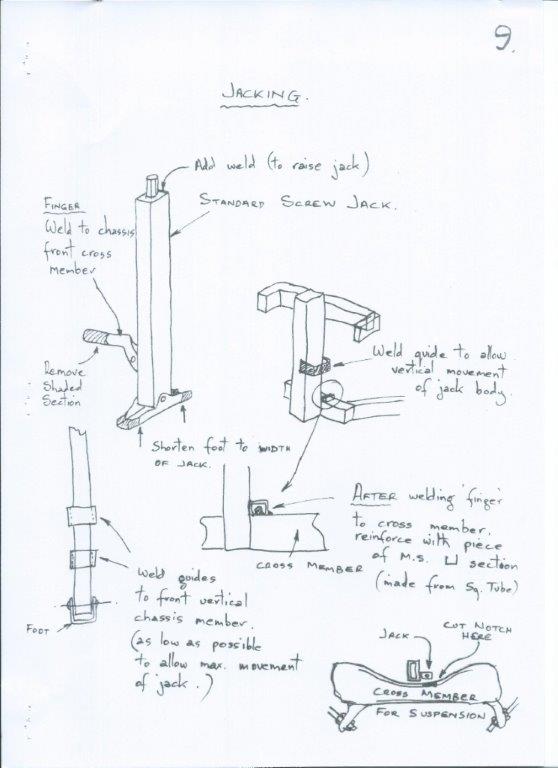 9.
JACKING.
Add weld (to raise jack)
STANDARD SCREW JACK.
FINGER
Weld to chassis
front cross
member
Remove
Shaded
Section
Weld guide to allow
vertical movement
of jack body.
Shorten foot to WIDTH
OF JACK.
AFTER welding 'finger'
to cross member,
reinforce with piece
of M.S. ⊔ section
(made from Sq. Tube)
CROSS MEMBER
Weld guides
to front vertical
chassis member.
(as low as possible
to allow max. movement
of jack.)
FOOT
JACK
CUT NOTCH
HERE
CROSS MEMBER
FOR SUSPENSION